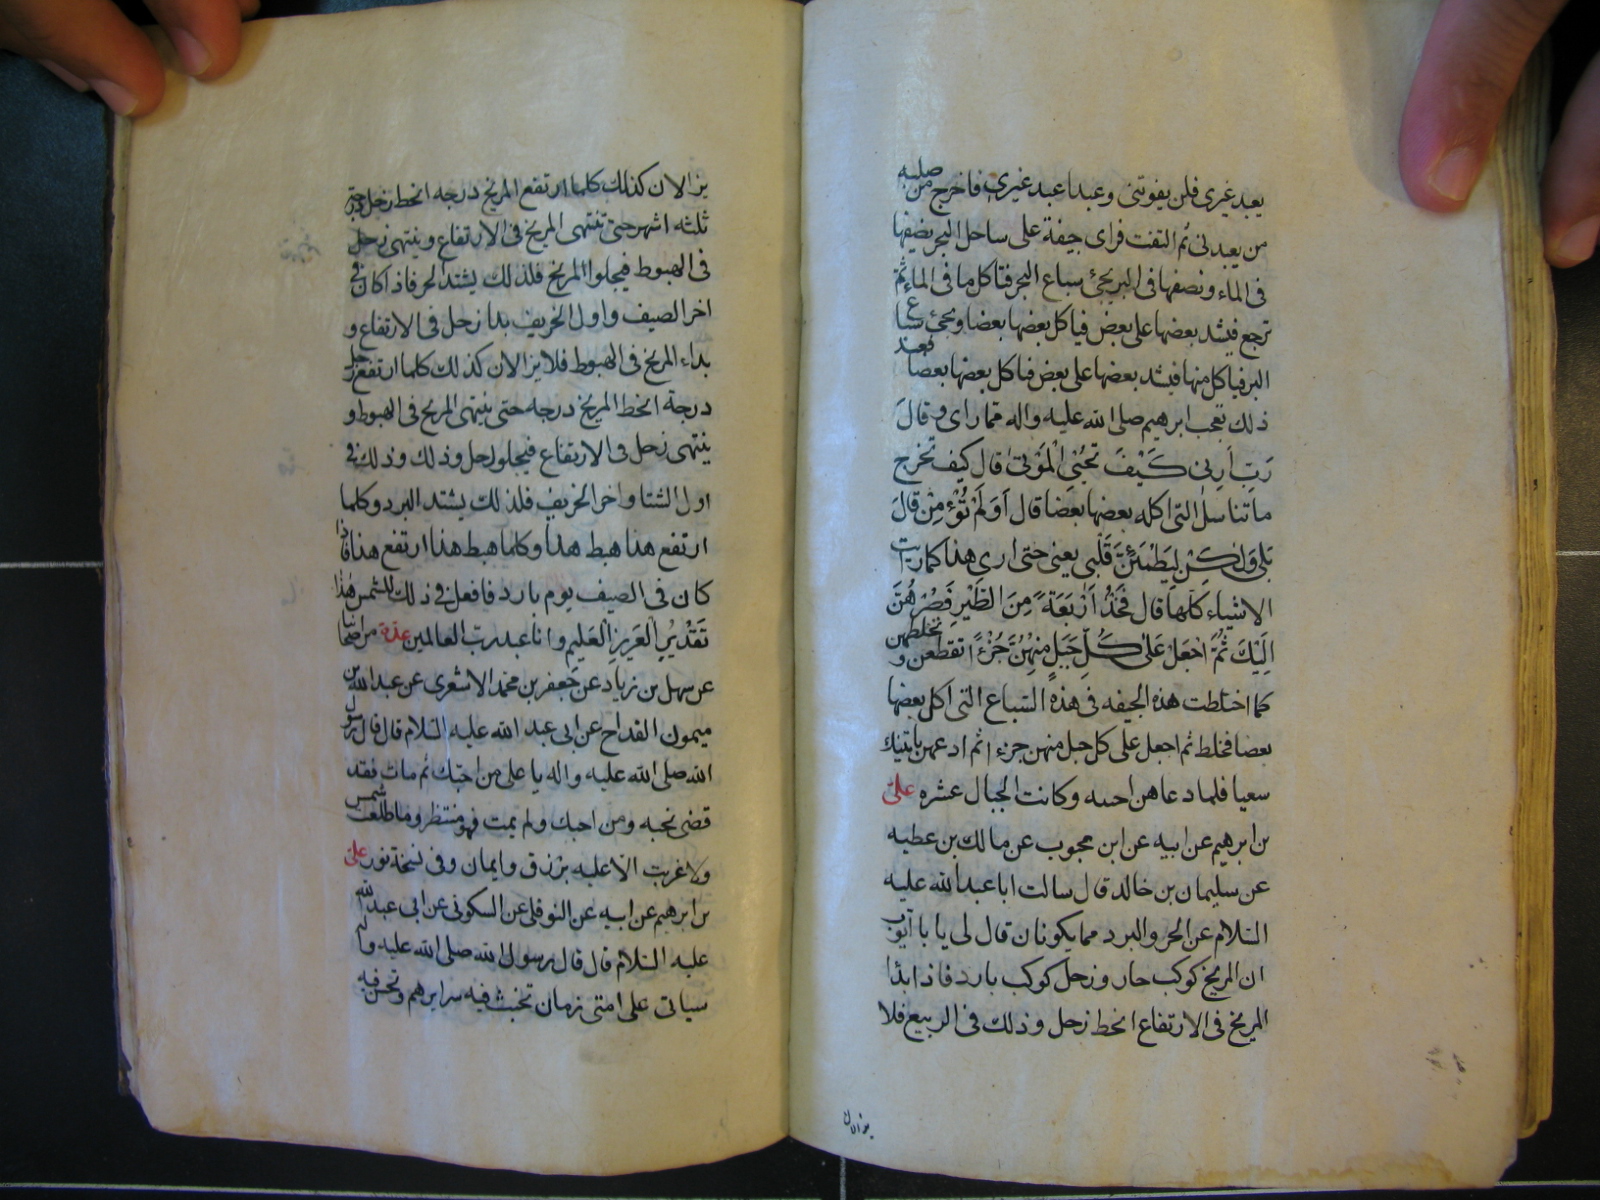 يعبد غيرى فلن يفوتنى وعبدا عبد غيرى فاخرج من صلبه
من يعبدنى ثم التفت فراى جيفة على ساحل البحر نصفها
فى الماء ونصفها فى البر يجئ سباع البحر فتاكل ما فى الماء ثم
ترجع فيشد بعضها على بعض فياكل بعضها بعضا ويجئ سباع
البر فياكل منها فيشد بعضها على بعض فياكل بعضها بعضا فعند
ذلك تعجب ابرهيم صلى الله عليه واله مما راى وقال
رَبِّ أَرِنِى كَيْفَ تُحْيِى الْمَوْتىٰ قال كيف تخرج
ما تناسل التى اكل بعضها بعضا قال أَوَلَمْ تُؤْمِنْ قالَ
بَلىٰ وَلٰكِنْ لِيَطْمَئِنَّ قَلْبِى يعنى حتى ارى هذا كما رايت
الاشياء كلها قال فَخُذْ أَرْبَعَةً مِنَ الطَّيْرِ فَصُرْهُنَّ
إِلَيْكَ ثُمَّ اجْعَلْ عَلىٰ كُلِّ جَبَلٍ مِنْهُنَّ جُزْءًا تقطعهن وتخلطهن
كما اختلطت هذه الجيفه فى هذه السباع التى اكل بعضها
بعضا فخلط ثم اجعل على كل جبل منهن جزءا ثم ادعهن ياتينك
سعيا فلما دعاهن اجبنه وكانت الجبال عشره علىّ
بن ابرهيم عن ابيه عن ابن محبوب عن مالك بن عطيه
عن سليمان بن خالد قال سالت ابا عبد الله عليه
السلام عن الحر والبرد مما يكونان قال لى يا با ايوب
ان المريخ كوكب حار وزحل كوكب بارد فاذا بدا
المريخ فى الارتفاع انحط زحل وذلك فى الربيع فلا
يزالان
يزالان كذلك كلما ارتفع المريخ درجه انحط زحل درجة
ثلثه اشهر حتى تنتهى المريخ فى الارتفاع وينتهى زحل
فى الهبوط فيجلوا المريخ فلذلك يشتد الحر فاذا كان فى
اخر الصيف واول الخريف بدا زحل فى الارتفاع و
بداء المريخ فى الهبوط فلا يزالان كذلك كلما ارتفع زحل
درجة انحط المريخ درجه حتى ينتهى المريخ فى الهبوط و
ينتهى زحل فى الارتفاع فيجلو زحل وذلك وذلك فى
اول الشتا واخر الخريف فلذلك يشتد البرد وكلما
ارتفع هذا هبط هذا وكلما هبط هذا ارتفع هذا فاذا
كان فى الصيف يوم بارد فافعل فى ذلك للشمس هذا
تَقْدِيرُ الْعَزِيزِ الْعَلِيمِ وانا عبد رب العالمين عدّة من اصحابنا
عن سهل بن زياد عن جعفر بن محمد الاشعرى عن عبد الله بن
ميمون القداح عن ابى عبد الله عليه السلام قال قال رسول
الله صلى الله عليه واله يا على من احبك ثم مات فقد
قضى نحبه ومن احبك ولم يمت فهو منتظر وما طلعت شمس
ولا غربت الا عليه برزق وايمان وفى نسخة نور علىّ
بن ابرهيم عن ابيه عن النوفلى عن السكونى عن ابى عبد الله
عليه السلام قال قال رسول الله صلى الله عليه واله
سياتى على امتى زمان تخبث فيه سرايرهم وتحسن فيه